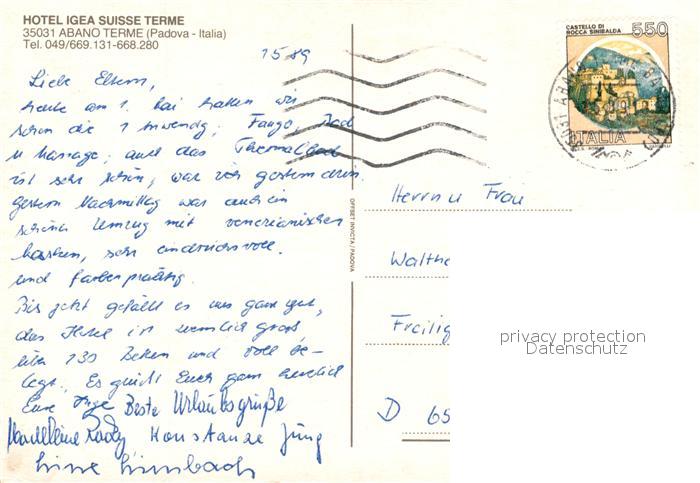 HOTEL IGEA SUISSE TERME
35031 ABANO TERME (Padova - Italia)
Tel. 049/669.131-668.280
1589
Liebe Eltern,
heute am 1. Mai hatten wir
schon die 1. Anwendg, Fango, Bad
u Massage, auch das Thermalbad
ist sehr schön, war ich gestern drin.
Gestern Nachmittag war auch ein
schöner Umzug mit venezianischen
Masken, sehr eindrucksvoll.
und farbenprächtig.
Bis jetzt gefällt es uns ganz gut,
das Hotel ist ziemlich groß
über 130 Betten und voll be-
legt. Es grüßt Euch ganz herzlich
Eure Inge Beste Urlaubsgrüße
Konstanze Jung
CASTELLO DI
ROCCA SINIBALDA
550
ITALIA
OFFSET INVICTA / PADOVA
Herrn u Frau
Walthe
Freilig
D 65
privacy protection
Datenschutz